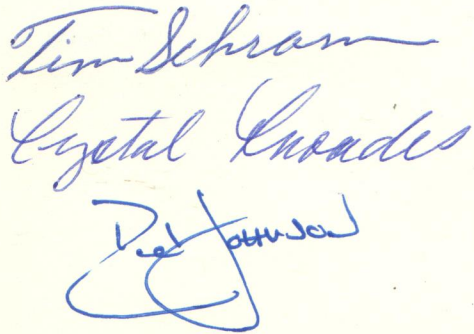 Tim Schram
Crystal Rhoades
Johnson